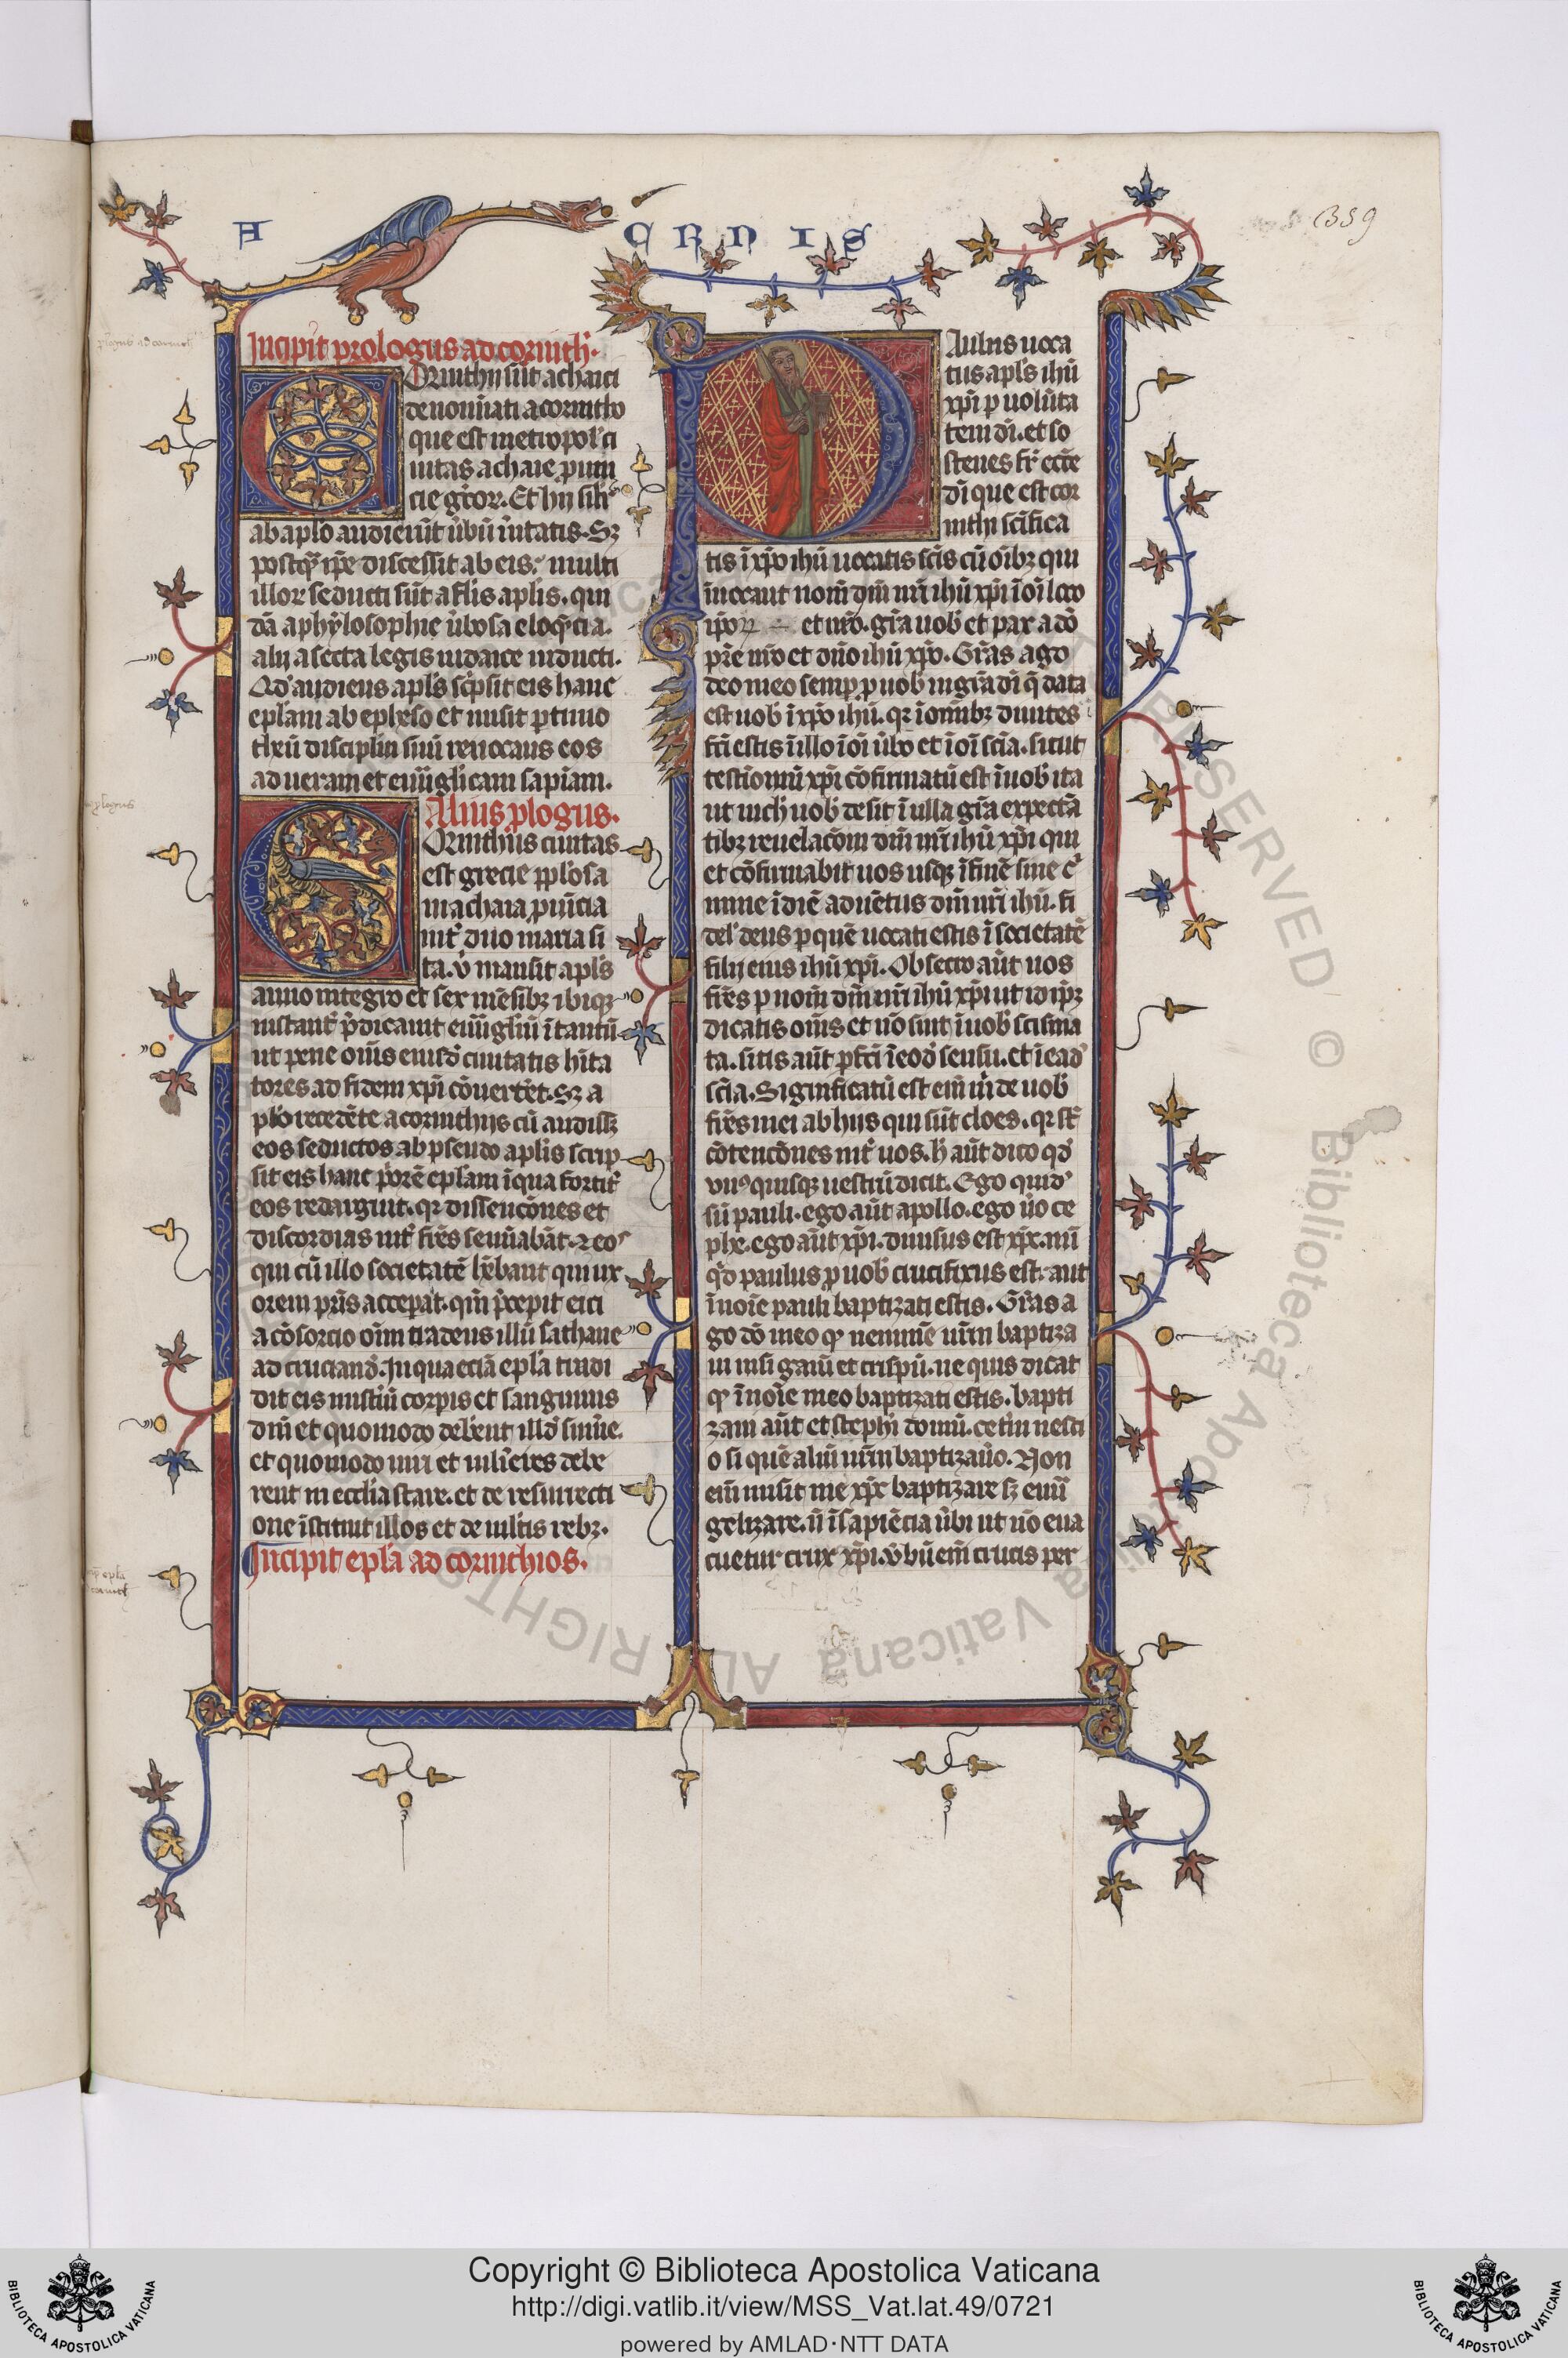 A CRNIS
359
Incipit prologus ad corinth̄.
CORinthij sūt achaici
denoīati a corintho
que est metropol' ci
uitas achaie p̱uin
cie gͥcor. Et hij sīlr
ab aplo audierūt ùbū ùitatis. Sȝ
postq̄ iṗe discessit ab eis. multi
illor seducti sūt a fl̄is aplis. qui
dā a phylosophie ùbosa eloq̄ncia.
alij a secta legis iudaice inducti.
Qd' audiens apls sc̀psit eis hanc
epl̄am ab epheso et misit p timo
theū disciplin̄ suū reuocans eos
ad ueram et euūglicam sapiam.
Alius plogus.
CORinthiis ciuitas
est grecie ppl'osa
in achaia p̱uīcia
int̄ duo maria si
ta. ù mansit apls
anno integro et sex mēsibȝ ibiqȝ
instant̄ p̀dicauit euūgliū ī tantū
ut pene om̄s eiusd' ciuitatis hīta
tores ad fidem xp̄i cōuertēt. Sȝ a
plo recedēte a corinthijs cū audissȝ
eos seductos ab pseudo aplis scrip
sit eis hanc p̀orē epl̄am ī qua fortit̄
eos redarguit. qr dissencōnes et
discordias int̄ fr̄es semīabāt. ⁊ eos
qui cū illo societatē hēbant qui ux
orem pr̄is accepat. qm̄ p̀cepit eici
a cōsorcio oīm tradens illū sathane
ad cruciand'. In qua eciā epl̄a tradi
dit eis mistiū corp̄is et sanguinis
dn̄i et quomodo deb'ent illd' sum̄e.
et quomodo uiri et mlieres debe
rent in ecclia stare. et de resurrecti
one īstituit illos et de mltis rebȝ.
Incipit epl̄a ad corinthios.
PAulus uoca
tus apls ihū
xp̄i p uolūta
tem dī. et so
stenes fr̄ eccl̄e
dī que est cor
inthi scīfica
tis ī xp̄o ihū uocatis scīs cū oībȝ qui
inuocant nom̄ dn̄i nr̄i ihū xp̄i ī oī loco
ip̄oꝝ et nr̄o. gr̄a uob' et pax a dō
pr̄e nr̄o et dn̄o ihū xp̄o. Gr̄as ago
deo meo semp̱ p uob' in gr̄a dī q̄ data
est uob' ī xp̄o ihū. qr ī om̄ibȝ diuites
fc̄i estis ī illo ī oī ùbo et ī oī scīa. sicut
testīoniū xp̄i cōfirmatū est ī uob' ita
ut nich' uob' desit ī ulla gr̄a expectā
tibȝ reuelacōm dn̄i nr̄i ihū xp̄i qui
et cōfirmabit uos usqȝ ī finē sine cͥ
mine ī diē aduētus dn̄i nr̄i ihū. fi
del' deus p quē uocati estis ī societatē
filij eius ihū xp̄i. Obsecro aūt uos
fr̄es p nom̄ dn̄i nr̄i ihū xp̄i ut idip̄ȝ
dicatis om̄s et nō sint ī uob' scisma
ta. sitis aūt pfc̄i ī eod' sensu. et ī ead'
scīa. Significatū est eīm m̀ de uob'
fr̄es mei ab hijs qui sūt cloes. qr st̄
cōtencōnes int̄ uos. h̀ aūt dico qd'
vnusquisqȝ uestrū dicit. Ego quid'
sū pauli. ego aūt apollo. ego ùo ce
phe. ego aūt xp̄i. diuisus est xp̄c. nū
q̄d paulus p uob' crucifixus est. aut
ī noīe pauli baptizati estis. Gr̄as a
go dō meo qr neminē ur̄m baptiza
ui nisi gaiū et crispū. ne quis dicat
qr ī noīe meo baptizati estis. bapti
zaui aūt et stephī domū. cetīn nesci
o si quē aliū ur̄m baptizaùo. Non
eīm misit me xp̄c baptizare sȝ euū
gelizare. n̄ ī sapiēcia ùbi ut nō eua
cuetur crux xp̄i. ùbū eīm crucis per
Copyright © Biblioteca Apostolica Vaticana
http://digi.vatlib.it/view/MSS_Vat.lat.49/0721
powered by AMLAD·NTT DATA
BIBLIOTECA APOSTOLICA VATICANA
BIBLIOTECA APOSTOLICA VATICANA